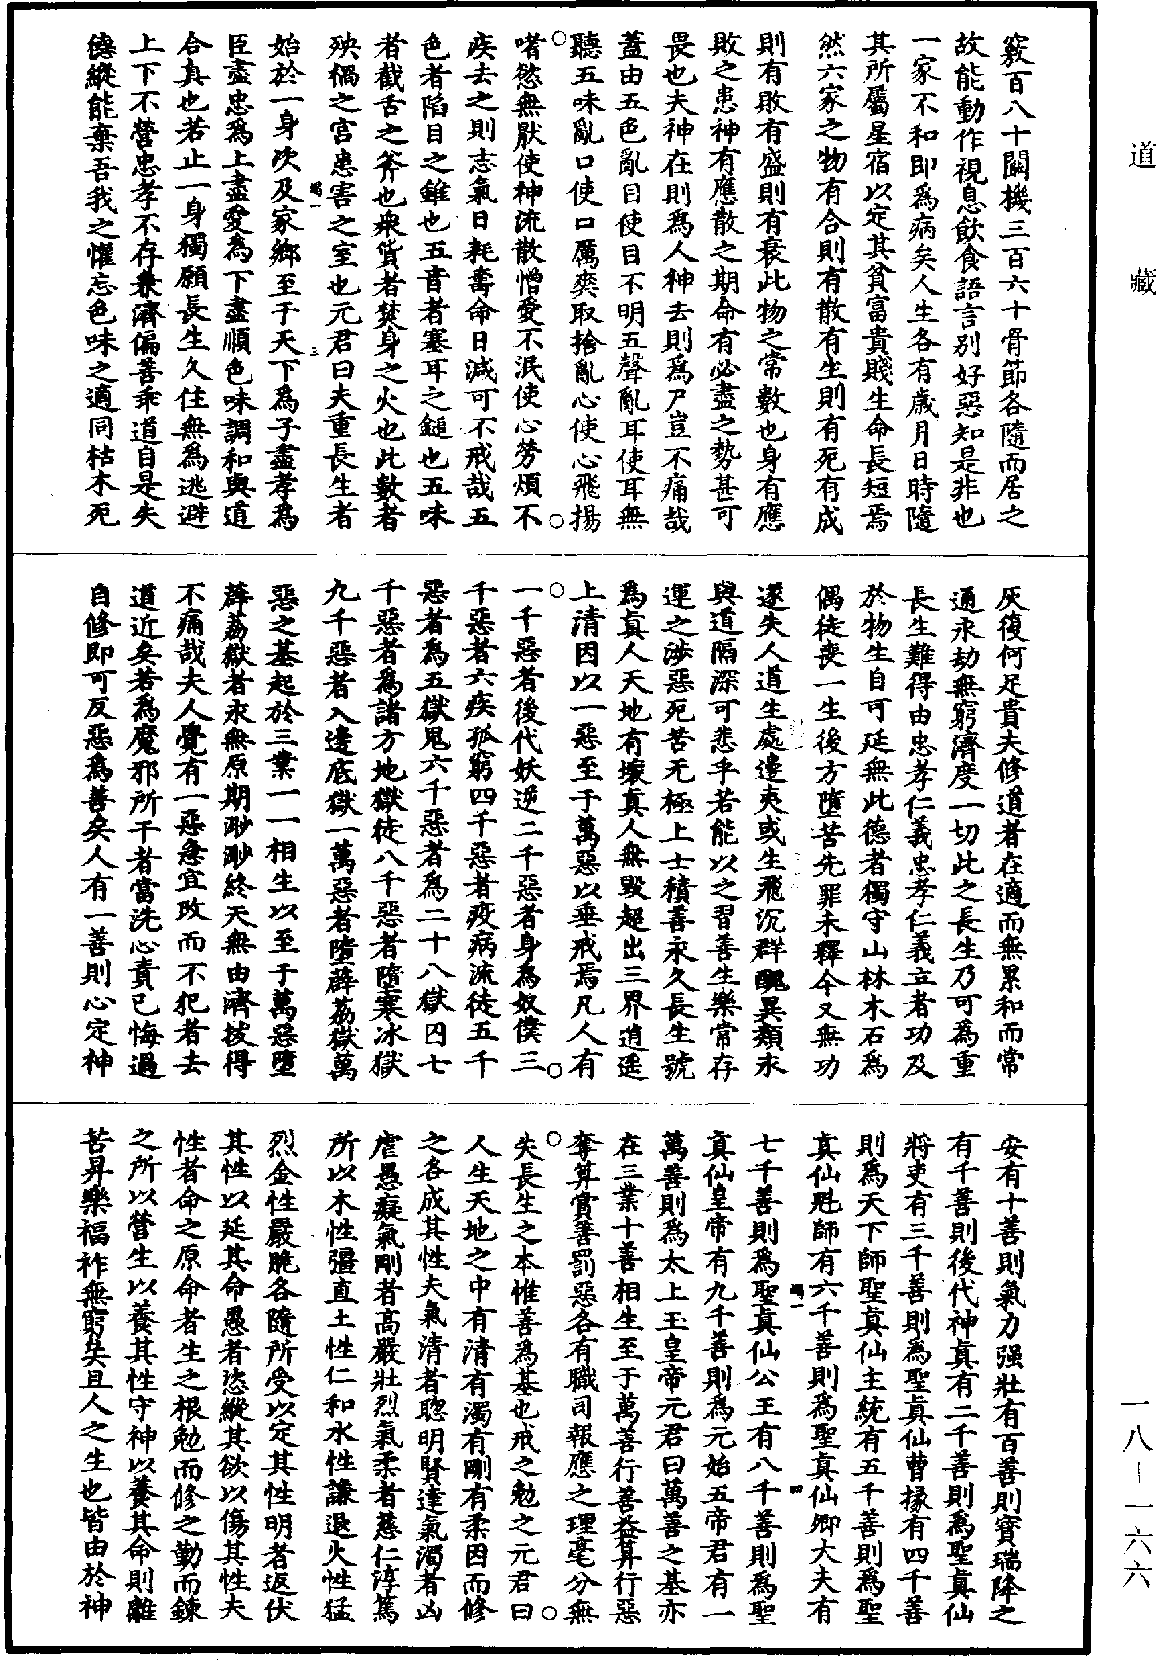 道藏
竅百八十關機三百六十骨節各隨而居之
故能動作視息飲食語言別好惡知是非也
一家不和即為病矣人生各有歲月日時隨
其所屬星宿以定其貧富貴賤生命長短焉
然六家之物有合則有散有生則有死有成
則有敗有盛則有衰此物之常數也身有應
敗之患神有應散之期命有必盡之勢甚可
畏也夫神在則為人神去則為尸豈不痛哉
蓋由五色亂目使目不明五聲亂耳使耳無
聽五味亂口使口厲爽取捨亂心使心飛揚
嗜慾無厭使神流散憎愛不泯使心勞煩不
疾去之則志氣日耗壽命日減可不戒哉五
色者陷目之錐也五音者塞耳之鎚也五味
者截舌之斧也衆貨者焚身之火也此數者
殃禍之宮患害之室也元君曰夫重長生者
始於一身次及家鄉至于天下為子盡孝為
臣盡忠為上盡愛為下盡順色味調和與道
合真也若止一身獨願長生久住無為逃避
上下不營忠孝不存兼濟偏善乖道自是失
德縱能棄吾我之懼忘色味之適同枯木死
灰復何足貴夫修道者在適而無累和而常
通永劫無窮濟度一切此之長生乃可為重
長生難得由忠孝仁義忠孝仁義立者功及
於物生自可延無此德者獨守山林木石為
偶徒喪一生後方墮苦先罪未釋今又無功
遂失人道生處邊夷或生飛沉群醜異類永
與道隔深可悲乎若能以之習善生樂常存
運之涉惡死苦无極上士積善永久長生號
為真人天地有壞真人無毀超出三界逍遥
上清因以一惡至于萬惡以垂戒焉凡人有
一千惡者後代妖逆二千惡者身為奴僕三
千惡者六疾孤窮四千惡者疫病流徒五千
惡者為五獄鬼六千惡者為二十八獄囚七
千惡者為諸方地獄徒八千惡者墮寒冰獄
九千惡者入邊底獄一萬惡者墮薜荔獄萬
惡之基起於三業一一相生以至于萬惡墮
薜荔獄者永無原期渺渺終天無由濟拔得
不痛哉夫人覺有一惡急宜改而不犯者去
道近矣若為魔邪所干者當洗心責己悔過
自修即可反惡為善矣人有一善則心定神
安有十善則氣力强壯有百善則寶瑞降之
有千善則後代神真有二千善則為聖真仙
將吏有三千善則為聖真仙曹掾有四千善
則為天下師聖真仙主統有五千善則為聖
真仙魁師有六千善則為聖真仙卿大夫有
七千善則為聖真仙公王有八千善則為聖
真仙皇帝有九千善則為元始五帝君有一
萬善則為太上玉皇帝元君曰萬善之基亦
在三業十善相生至于萬善行善益算行惡
奪算賞善罰惡各有職司報應之理毫分無
失長生之本惟善為基也戒之勉之元君曰
人生天地之中有清有濁有剛有柔因而修
之各成其性夫氣清者聰明賢達氣濁者凶
虐愚癡氣剛者高嚴壯烈氣柔者慈仁淳篤
所以木性彊直土性仁和水性謙退火性猛
烈金性嚴脆各隨所受以定其性明者返伏
其性以延其命愚者恣縱其欲以傷其性夫
性者命之原命者生之根勉而修之勤而鍊
之所以營生以養其性守神以養其命則離
苦昇樂福祚無窮矣且人之生也皆由於神
一八－一六六